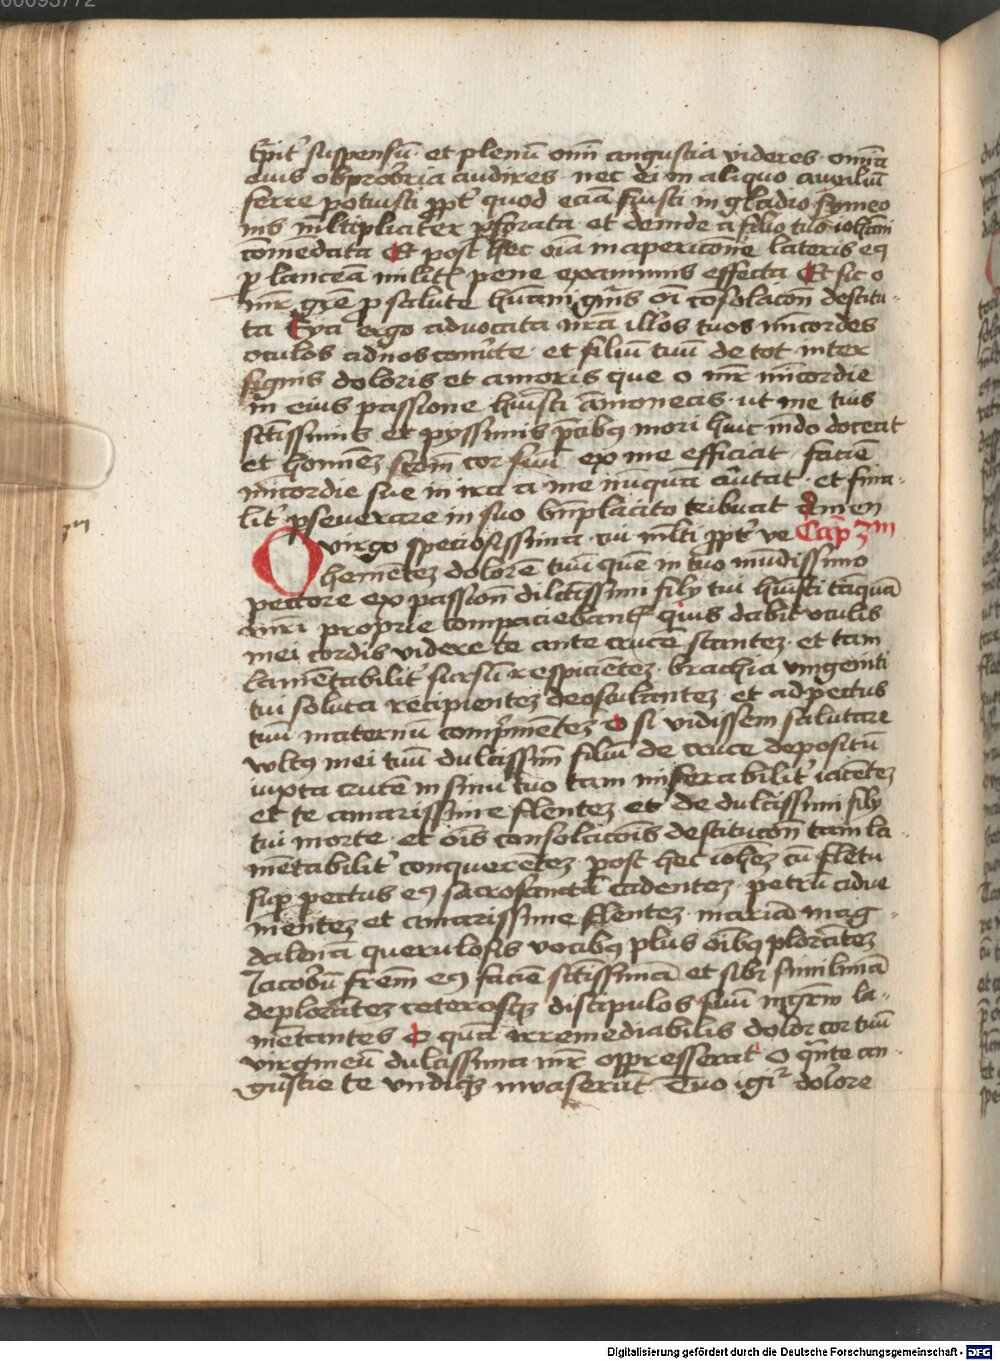 00093772
suspensū et plenū om̄i angustia videres om̄ia
eius obprobria audires nec ei in aliquo auxiliū
ferre potuisti ppt̄ quod eciā fuisti in gladio symeo
nis m̄ltipliciter pforata et deinde a filio tuo ioh̄ani
cōmēdata Et post hec oīa in apericione lateris eꝯ
p lanceā militꝭ pene exanimis effecta Et sic o
mr̄ grē p salute hūani gn̄is oī cōsolacōn destitu-
ta Eya ergo aduocata nr̄a illos tuos mīcordes
oculos ad nos conūte et filiū tuū de tot inter
signis doloris et amoris que o mr̄ mīcordie
in eius passione huīsti ut me tuis
sct̄issimis et pyssimis p̄cibꝯ mori huic mūdo doceat
et homīeꝫ scd̄m cor suū ex me efficiat faciē
mīcordie sue in ira a me nūquā aūtat et fina-
lit̄ pseuerare in suo bn̄placito tribuat Amen
O virgo speciosissima cui m̄lti ppt̄ ve Cap̄ 3m
hemēteꝫ dolorē tuū quē in tuo mūdissimo
pectore ex passiōn dilc̄tissimi filij tui huīsti tāquā
mr̄i proprie compaciebant̄ quis dabit oculis
mei cordis videre te ante crucē stanteꝫ et tam
lamētabilit̄ sursū respicieteꝫ brachia vnigeniti
tui soluta recipienteꝫ deosculanteꝫ et ad pectus
tuū maternū comp̄mēteꝫ O si vidissem salutare
vultꝯ mei tuū dulcissim̄ filiū de cruce depositū
iuxta crucē in sinu tuo tam miserabilit̄ iacēteꝫ
et te amarissime flenteꝫ et de dulcissimi filij
tui morte et oīs consolacōis destitucōn tam la-
mētabilit̄ conquerēteꝫ post hec ioh̄eꝫ cū fletu
sup pectus eꝯ sacrosanctū cadenteꝫ petrū adue
nienteꝫ et amarissime flenteꝫ mariā mag-
dalenā querulosis vocibꝯ plus oībꝯ plorāteꝫ
Jacobū frem̄ eꝯ faciē sct̄issimā et sibi similimā
deplorāteꝫ ceterosqꝫ discipulos suū mgr̄m la-
mētantes O quā irremediabilis dolor cor tuū
virgineū dulcissima mr̄ oppresserat O qn̄te an-
gustie te vndiqꝫ inuaserūt Tuo igit̄ dolore
Digitalisierung gefördert durch die Deutsche Forschungsgemeinschaft - DFG